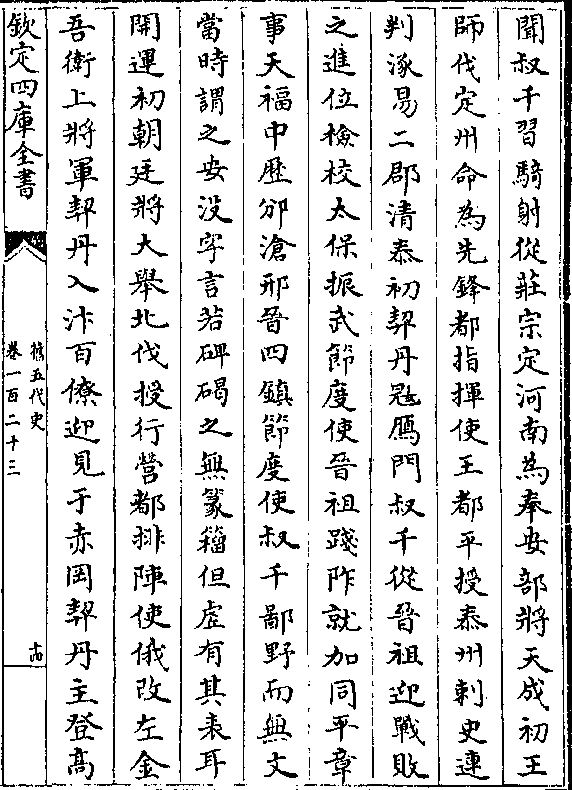 聞叔千習騎射從莊宗定河南為奉安部將天成初王
師伐定州命為先鋒都指揮使王都平授泰州刺史連
判涿易二郡清泰初契丹冦鴈門叔千從晉祖迎戰敗
之進位檢校太保振武節度使晉祖踐阼就加同平章
事天福中歴邠滄邢晉四鎮節度使叔千鄙野而無文
當時謂之安没字言若碑碣之無篆籀但虛有其表耳
開運初朝廷將大舉北伐授行營都排陣使俄改左金
吾衛上將軍契丹入汴百僚迎見于赤岡契丹主登高
欽定四庫全書
舊五代史
卷一百二十三
十四